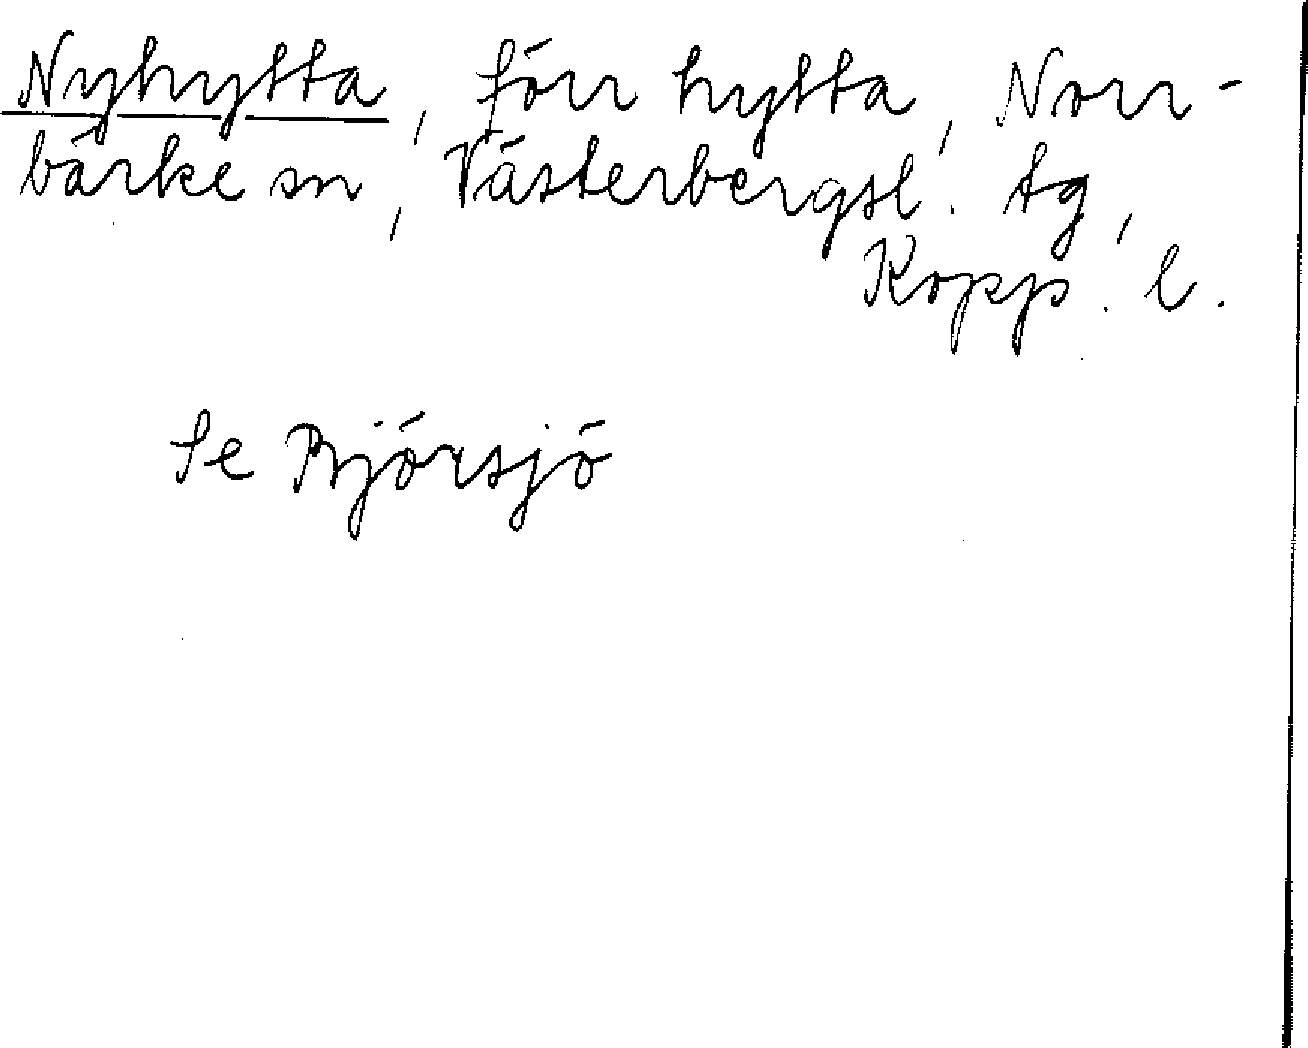 Nyhytta, förr hytta, Norr-
bärke sn, Västerbergsl. tg,
Kopp. l.
Se Björsjö